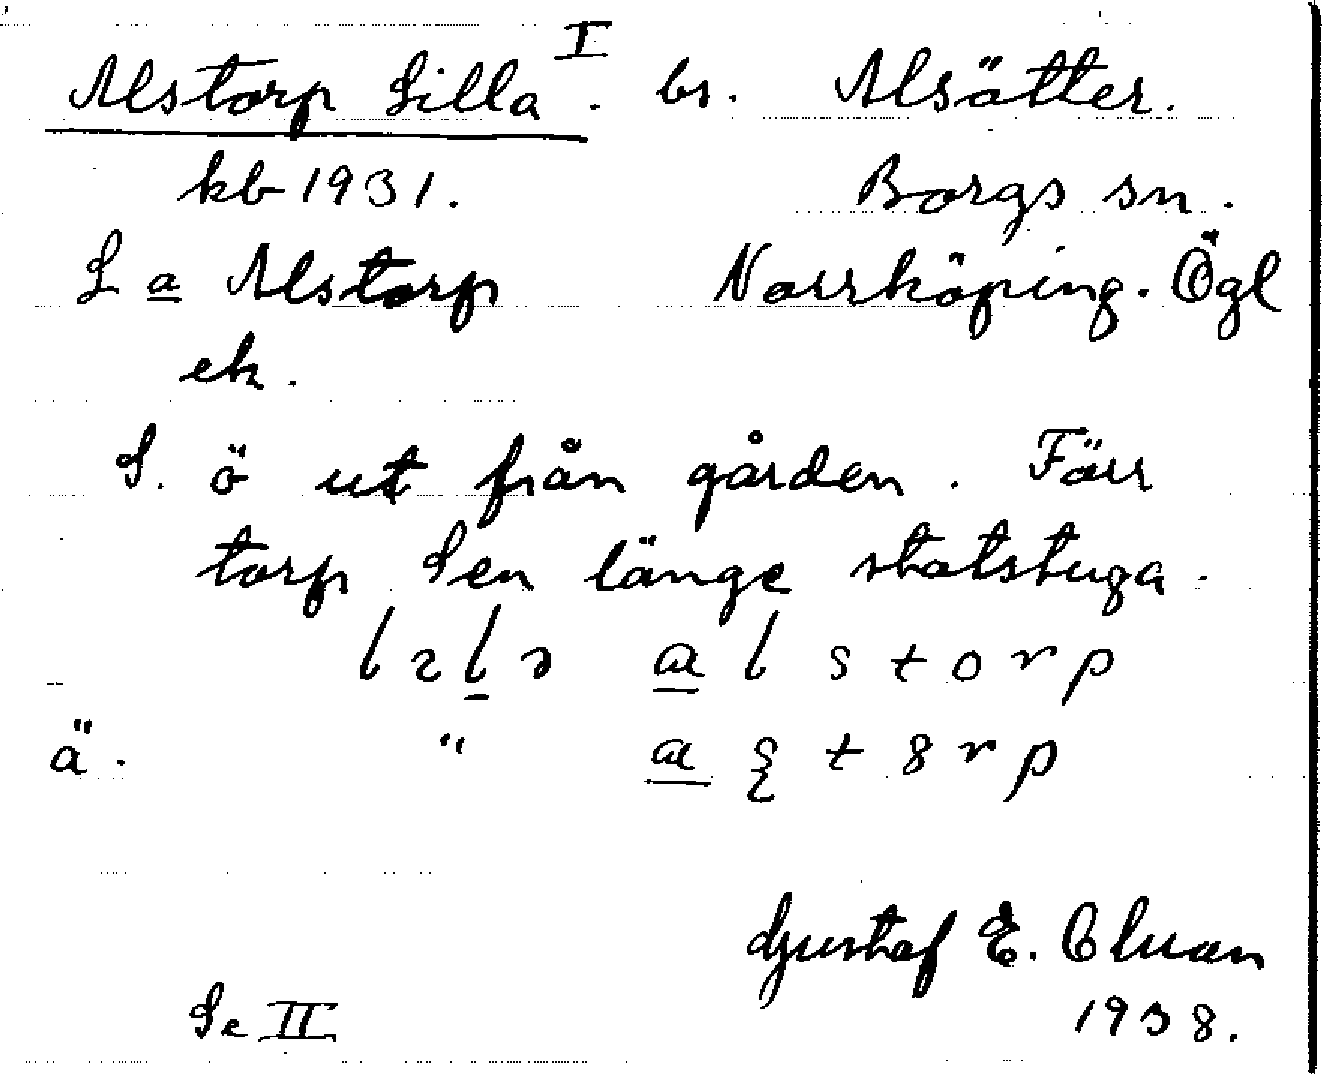 Alstorp Lilla I. bs. Alsätter.
kb 1931. Borgs sn.
L a Alstorp Norrköping. Ögl
ek.
S. ö ut från gården. Förr
torp Sen länge statstuga.
alstorp
ä. "
Gustaf E.
Se II 1938.